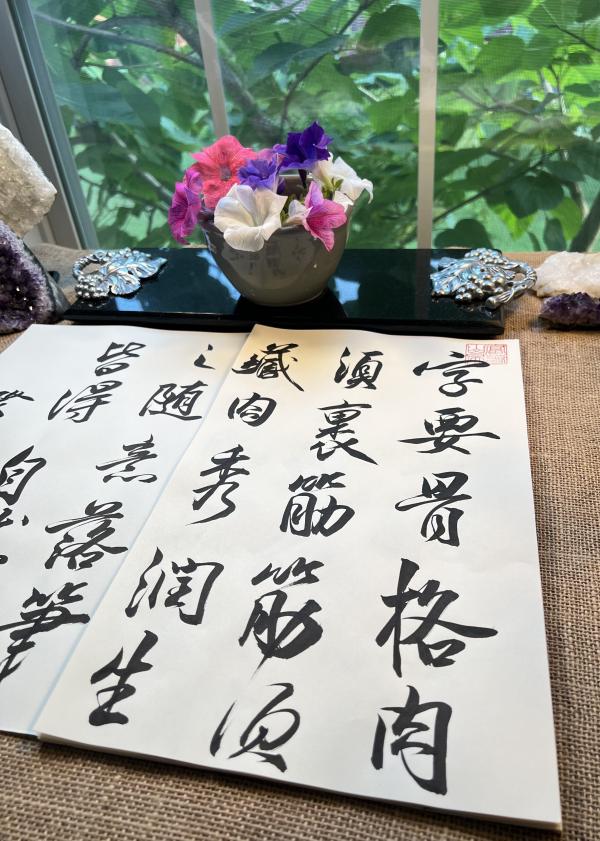 字要骨格肉
須裹筋筋須
藏肉秀潤生
之随意落筆
皆得自然